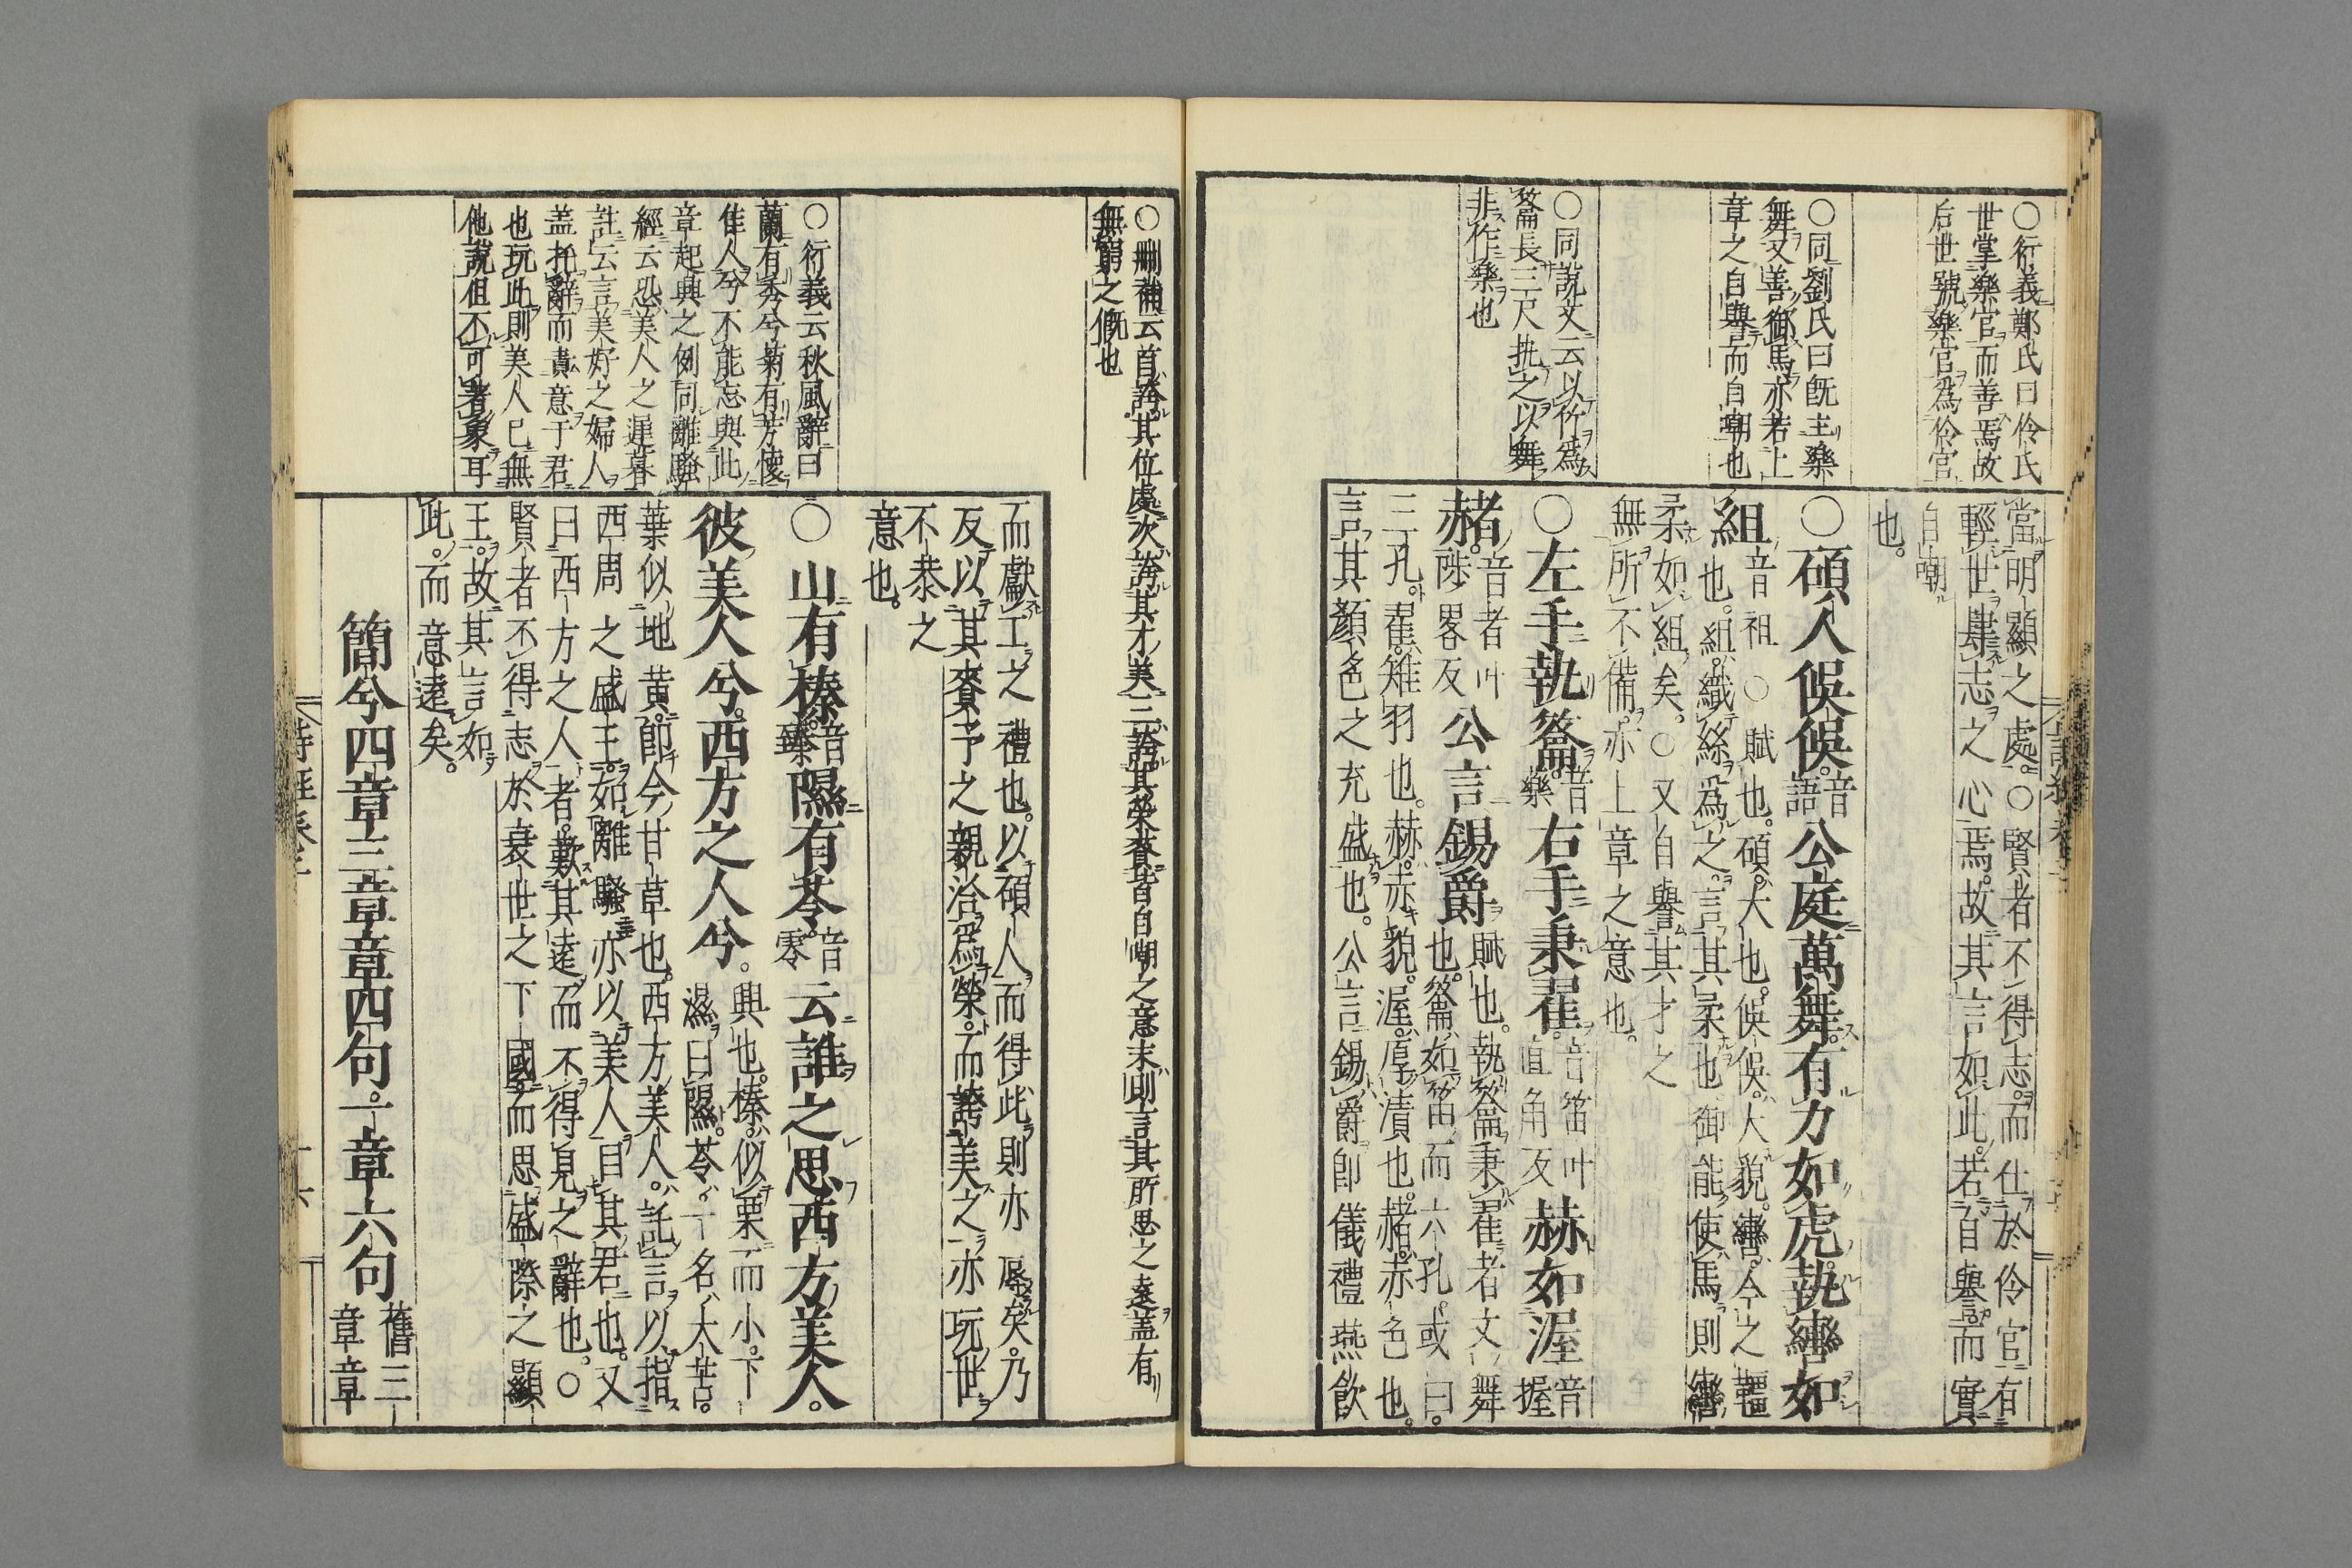 ○衍義鄭氏曰伶氏
世掌樂官而善焉故
后世號樂官爲伶官
○同劉氏曰既主樂
舞又善御馬亦若上
章之自譽而自嘲也
○同說文云以竹爲
籥長三尺執之以舞
非作樂也
當明顯之處○賢者不得志而仕於伶官有
輕世肆志之心焉故其言如此若自譽而實
自嘲
也
○碩人俁俁音語公庭萬舞有力如虎執轡如
組音祖○賦也碩大也俁俁大貌轡今之韁
也組織絲爲之言其柔也御能使馬則轡
柔如組矣○又自譽其才之
無所不備亦上章之意也
○左手執籥音樂右手秉翟音笛叶直角反赫如渥音握
赭音者叶陟畧反公言錫爵賦也執籥秉翟者文舞
也籥如笛而六孔或曰
三孔翟雉羽也赫赤貌渥厚漬也赭赤色也
言其顏色之充盛也公言錫爵即儀禮燕飲
○刪補云首誇其位處次誇其才美三誇其榮賚皆自嘲之意末則言其所思之遠蓋有
無窮之慨也
○衍義云秋風辭曰
蘭有秀兮菊有芳懷
佳人兮不能忘與此
章起興之例同離騷
經云恐美人之遲暮
註云言美好之婦人
蓋托辭而責意于君
也玩此則美人已無
他說但不可著象耳
而獻工之禮也以碩人而得此則亦辱矣乃
反以其賚予之親洽爲榮而誇美之亦玩世
不恭之
意也
○山有榛音臻隰有苓音零云誰之思西方美人
彼美人兮西方之人兮興也榛似栗而小下
濕曰隰苓一名大苦
葉似地黃即今甘草也西方美人託言以指
西周之盛王如離騷亦以美人目其君也又
曰西方之人者歎其遠而不得見之辭也○
賢者不得志於衰世之下國而思盛際之顯
王故其言如
此而意遠矣
簡兮四章三章章四句一章六句舊三
章章